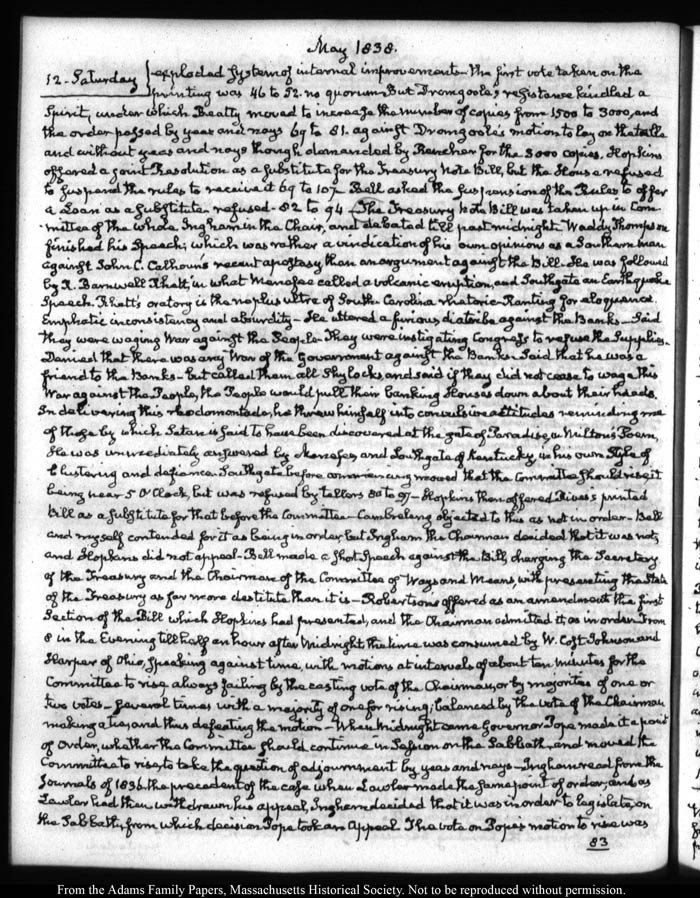 May 1838.
12. Saturday exploded System of internal improvements. The first vote taken on the
printing was 46 to 52. no quorum. But Dromgoole's resistance kindled a
Spirit, under which Beatty moved to increase the number of copies from 1500 to 3000, and
the order passed by yeas and noys 69 to 81. against Dromgoole's motion to lay on the table
and without yeas and noys though demanded by Rencher for the 3000 copies. Hopkins
offered a joint Resolution as a substitute for the Treasury Note Bill, but the House refused
to suspend the rules to receive it 69 to 107. Bell asked the suspension of the Rules to offer
a Loan as a substitute refused. 82 to 94. The Treasury Note Bill was taken up in Com-
mittee of the whole, Ingham in the Chair, and debated till past midnight. Waddy Thompson
finished his Speech; which was rather a vindication of his own opinions as a Southern man
against John C. Calhoun's recent apostasy than an argument against the Bill. He was followed
by R. Barnwell Rhett, in what Menefee called a volcanic eruption, and Southgate an Earthquake
Speech. Rhett's oratory is the ne plus ultra of South Carolina rhetoric. Ranting for eloquence.
Emphatic inconsistency and absurdity. He uttered a furious diatribe against the Banks. Said
they were waging War against the People. They were instigating Congress to refuse the Supplies.
Denied that there was any War of the Government against the Banks. Said that he was a
friend to the Banks. but called them all Shylocks, and said if they did not cease to wage this
War against the People, the People would pull their banking Houses down about their heads.
In delivering this rhodomontade, he threw himself into convulsive attitudes reminding me
of those by which Satan is said to have been discovered at the gate of Paradise, in Milton's Poem,
He was immediately answered by Menefee, and Southgate of Kentucky, in his own Style of
blustering and defiance. Southgate before commencing moved that the Committee should rise, it
being near 5 O'Clock, but was refused by tellers 80 to 97. Hopkins then offered Rives's printed
bill as a substitute for that before the Committee. Cambreleng objected to this as not in order. Bell
and myself contended for it as being in order but Ingham the Chairman decided that it was not;
and Hopkins did not appeal. Bell made a short Speech against the Bill, charging the Secretary
of the Treasury and the Chairman of the Committee of Ways and Means, with presenting the State
of the Treasury as far more destitute than it is. Robertson offered as an amendment the first
Section of the Bill which Hopkins had presented, and the Chairman admitted it as in order. From
8 in the Evening till half an hour after Midnight, the time was consumed by W. Cost Johnson and
Harper of Ohio, Speaking against time, with motions at intervals of about ten minutes for the
Committee to rise, always failing by the casting vote of the Chairman, or by majorities of one or
two votes. Several times with a majority of one for rising, balanced by the vote of the Chairman
making a tie, and thus defeating the motion. When Midnight came Governor Pope made it a point
of Order, whether the Committee should continue in Session on the Sabbath, and moved the
Committee to rise, to take the question of adjournment by yeas and nays. Ingham read from the
Journals of 1836. the precedent of the case when Lawler made the same point of order, and as
Lawler had then withdrawn his appeal, Ingham decided that it was in order to legislate, on
the Sabbath, from which decision Pope took an Appeal. The vote on Pope's motion to rise was
83
From the Adams Family Papers, Massachusetts Historical Society. Not to be reproduced without permission.